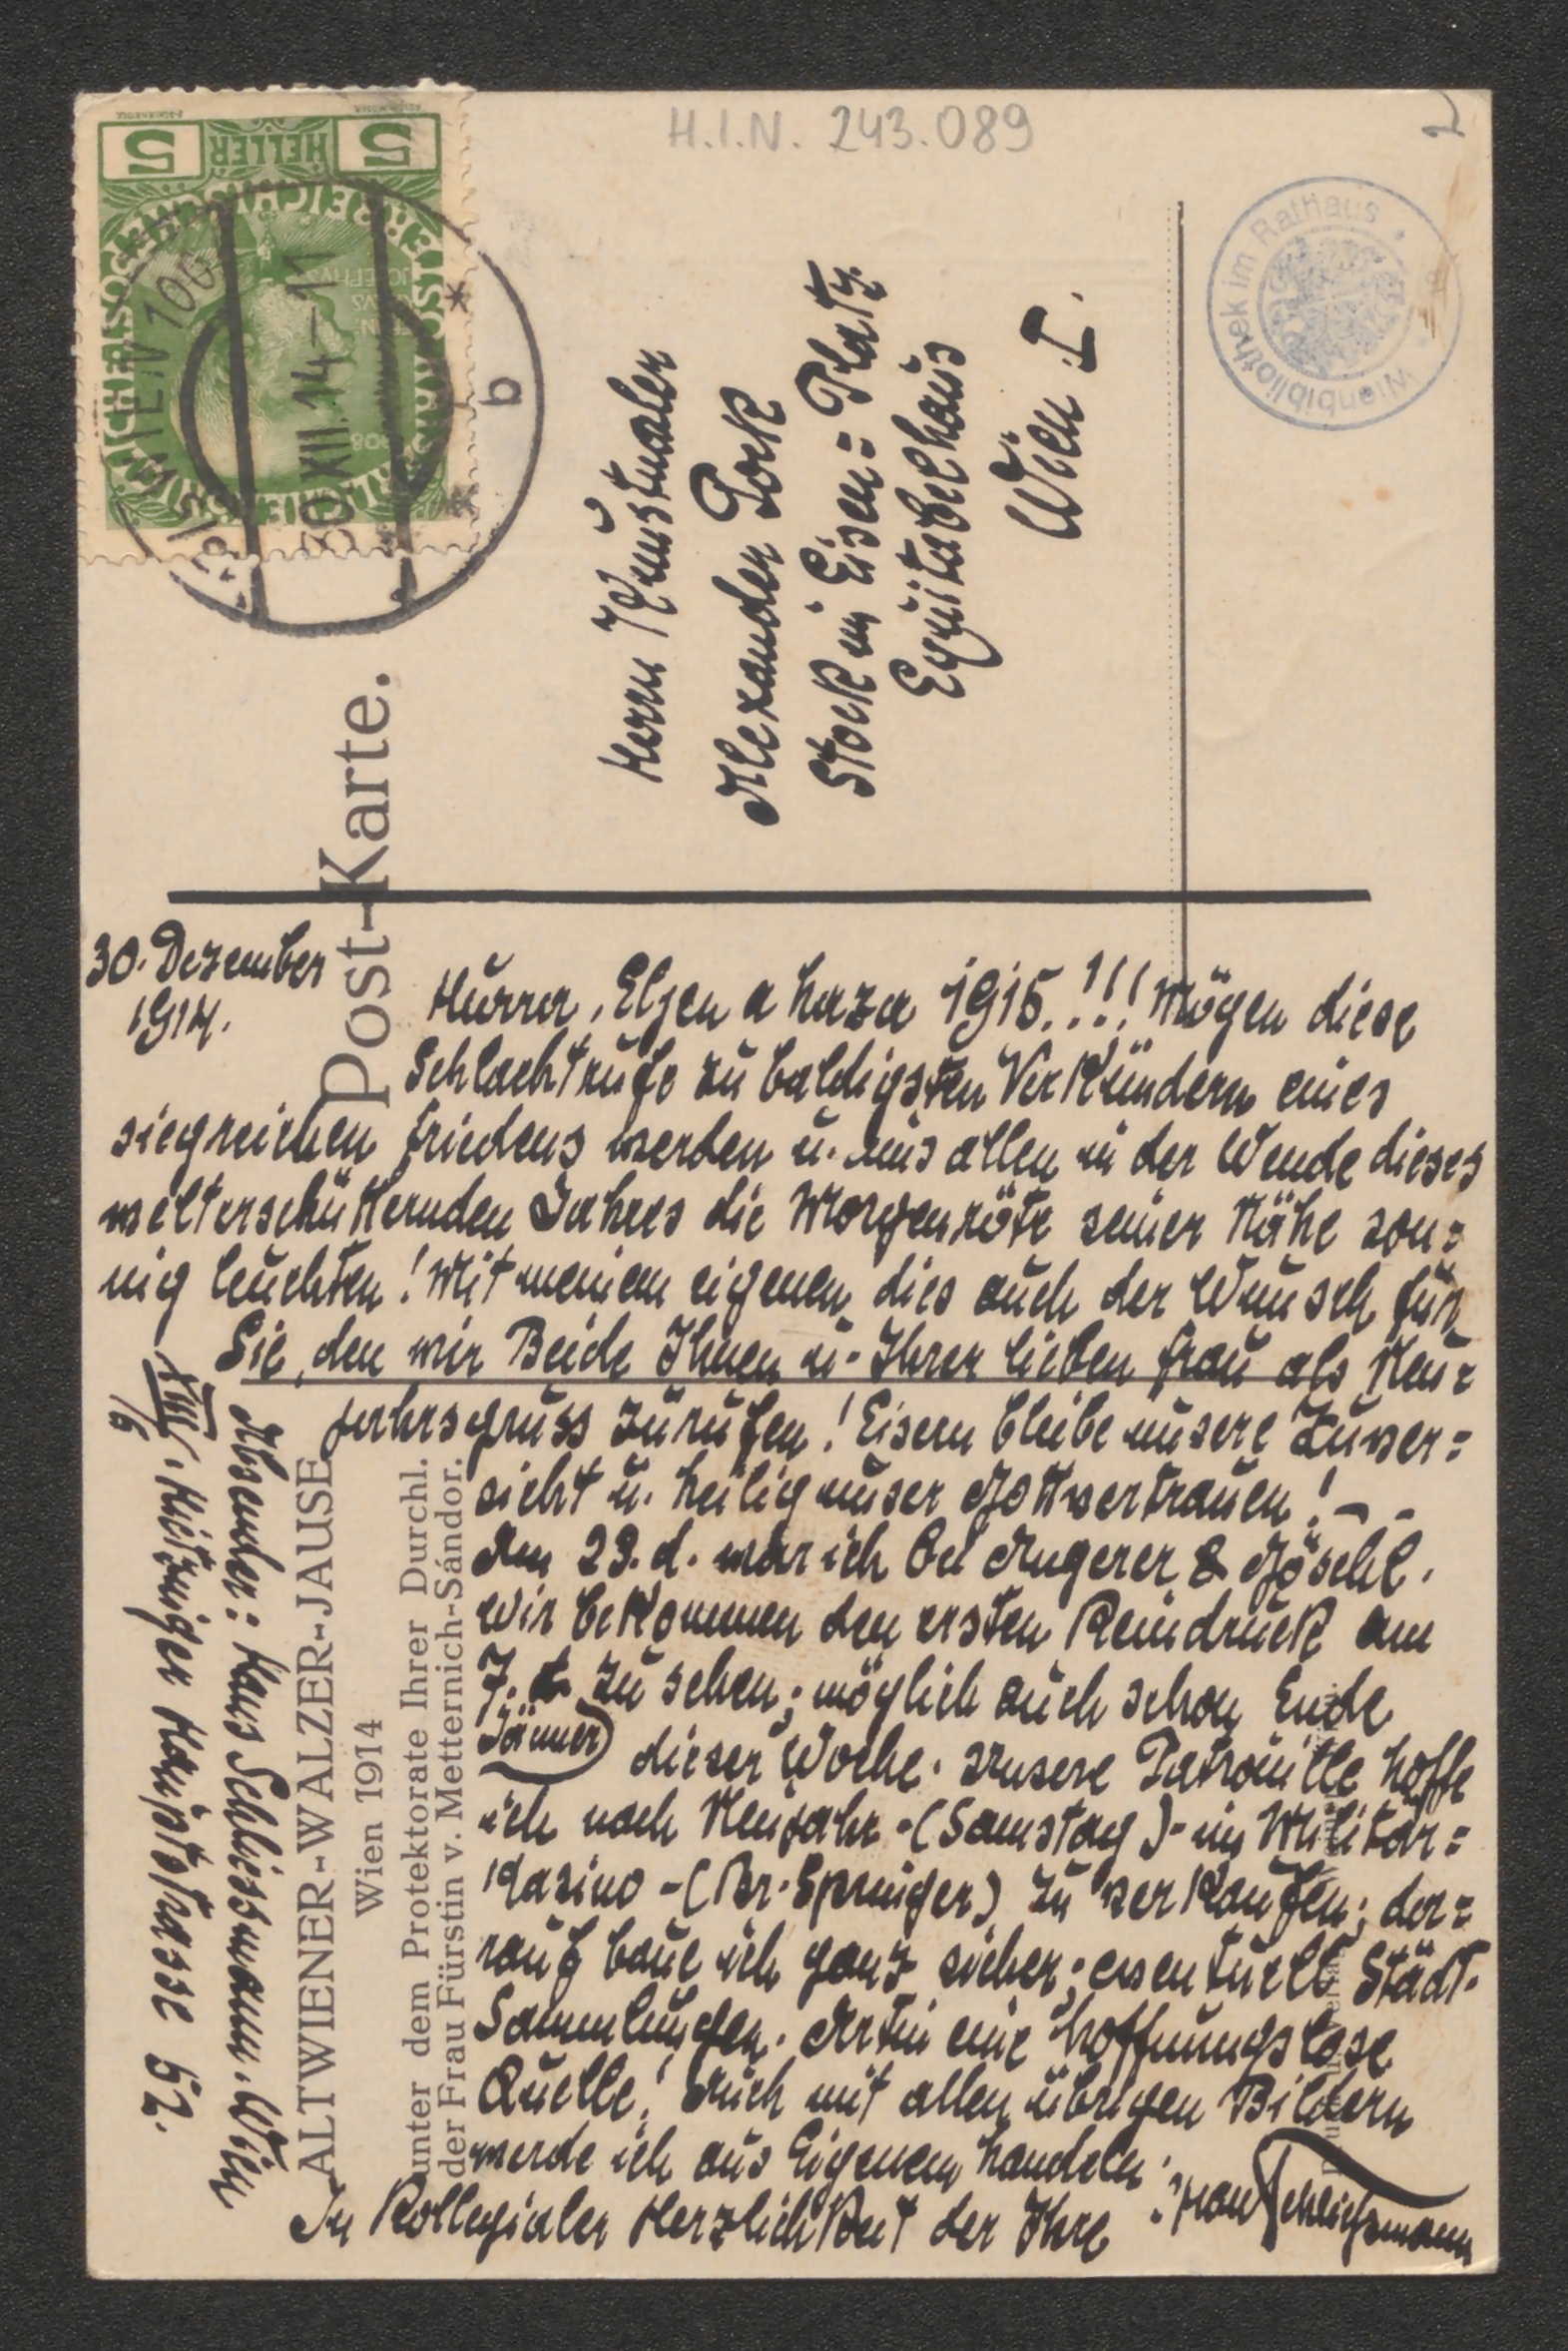 H.I.N. 243.089
2
5 HELLER 5
WIEN 100
30.XII.14-11
b
Wienbibliothek im Rathaus
Post-Karte.
Herrn Kunstmaler
Alexander Pock
Stock im Eisen=Platz
Equitabelhaus
Wien I.
30. Dezember
1914.
Hurra, Eljen a haza 1915.!!! Mögen diese
Schlachtrufe zu baldigsten Verkündern eines
siegreichen Friedens werden u. uns allen in der Wende dieses
welterschütternden Jahres die Morgenröte seiner Nähe son=
nig leuchten! Mit meinem eigenen dies auch der Wunsch für
Sie, den wir Beide Ihnen u. Ihrer lieben Frau als Neu=
jahrsgruss zurufen! Eisern bleibe unsere Zuver=
sicht u. heilig unser Gottvertrauen! –
Am 29. d. war ich bei Angerer & Göschl.
Wir bekommen den ersten Reindruck am
7. zu sehen; möglich auch schon Ende
Jänner
dieser Woche. Unsere Patrouille hoffe
ich nach Neujahr -(Samstag)- im Militär=
Kasino -(Br. Springer) zu verkaufen; da=
rauf baue ich ganz sicher; eventuell Städt.
Sammlungen. Artin eine hoffnungslose
Quelle! Auch mit allen übrigen Bildern
werde ich aus Eigenem handeln.
In Kollegialer Herzlichkeit der Ihre
Hans Schliessmann
ALTWIENER-WALZER-JAUSE
Wien 1914
unter dem Protektorate Ihrer Durchl.
der Frau Fürstin v. Metternich-Sándor.
Absender: Hans Schliessmann. Wien
XIII/6. Hietzinger Hauptstrasse 52.